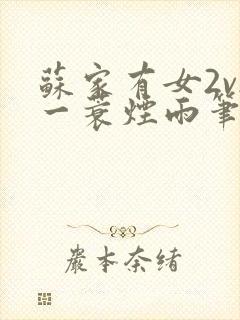 蘇家有女2v
一蓑煙雨筆
嚴本奈緒